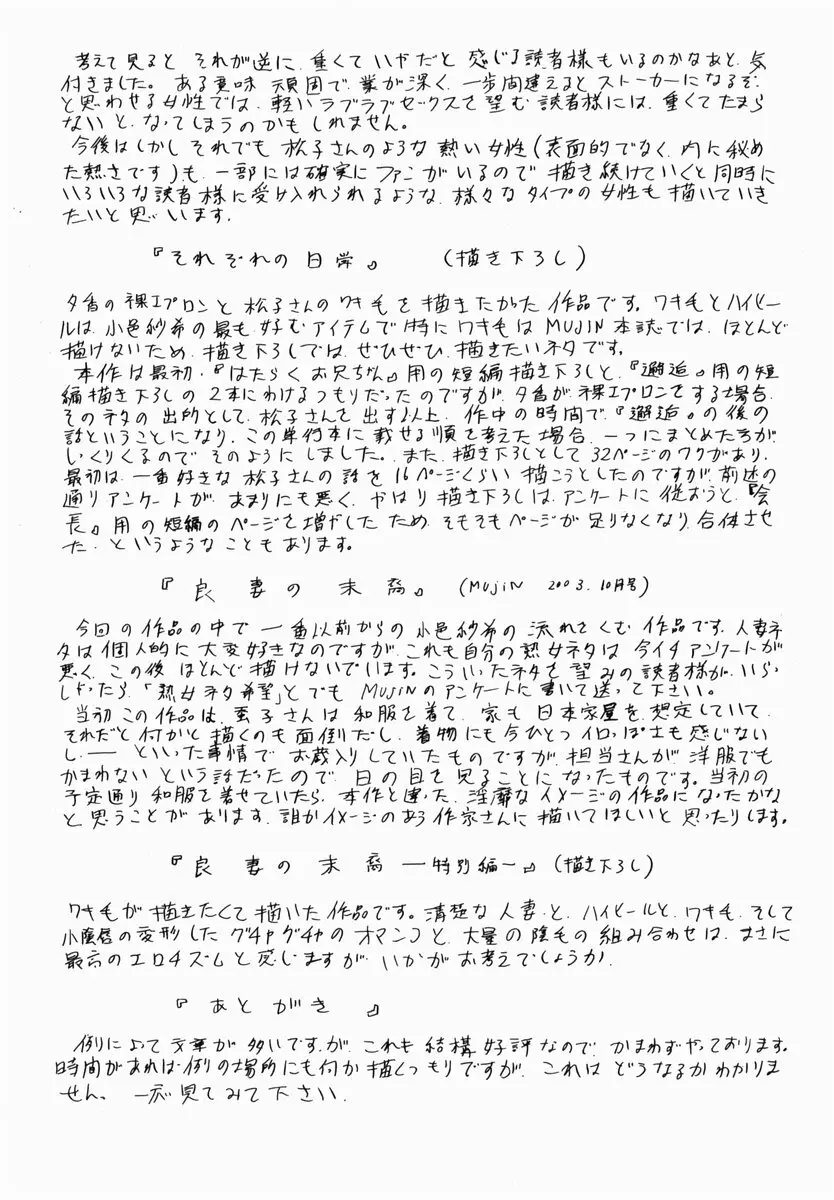 考えて見ると、それが逆に、重くていやだと感じる読者様もいるのかなあと、気
付きました。ある意味頑固で、業が深く、一歩間違えるとストーカーになるぞ
と思わせる女性では、軽いラブラブセックスを望む読者様には、重くてたまら
ないと、なってしまうのかもしれません。
今後はしかしそれでも松子さんのような熱い女性(表面的でなく、内に秘め
た熱さです)も、一部には確実にファンがいるので描き続けていくと同時に
いろいろな読者様に受け入れられるような、様々なタイプの女性も描いていき
たいと思います。
『それぞれの日常』 (描き下ろし)
夕香の裸エプロンと松子さんのワキ毛を描きたかった作品です。ワキ毛とハイヒー
ルは、小邑紗希の最も好むアイテムで特にワキ毛はMUJIN本誌では、ほとんど
描けないため、描き下ろしでは、ぜひぜひ描きたいネタです。
本作は最初、『はたらくお兄ちゃん』用の短編描き下ろしと、『邂逅』用の短
編描き下ろしの2本にわけるつもりだったのですが、夕香が裸エプロンをする場合、
そのネタの出所として、松子さんを出す以上、作中の時間で、『邂逅』の後の
話ということになり、この単行本に載せる順を考えた場合、一つにまとめた方が
しっくりくるのでそのようにしました。また、描き下ろしとして32ページのワクがあり、
最初は、一番好きな松子さんの話を16ページくらい描こうとしたのですが、前述の
通りアンケートが、あまりにも悪く、やはり描き下ろしは、アンケートに従おうと、『会
長』用の短編のページを増やしたため、そもそもページが足りなくなり、合体させ
た、というようなこともあります。
『良妻の末裔』 (MUJIN 2003.10月号)
今回の作品の中で一番以前からの小邑紗希の流れをくむ作品です。人妻ネ
タは個人的に大変好きなのですが、これも自分の熟女ネタは今イチアンケートが
悪く、この後ほとんど描けないでいます。こういったネタを望みの読者様が、いらっ
しゃったら、「熟女ネタ希望」とでもMUJINのアンケートに書いて送って下さい。
当初この作品は、子さんは和服を着て、家も日本家屋を想定していて、
それだと何かと描くのも面倒だし、着物にも今ひとつイロっぽさも感じない
し、――といった事情でお蔵入りしていたものですが、担当さんが洋服でも
かまわないという話だったので、日の目を見ることになったものです。当初の
予定通り和服を着せていたら、本作と違った、淫靡なイメージの作品になったかな
と思うことがあります。誰かイメージのあう作家さんに描いてほしいと思ったりします。
『良妻の末裔―特別編―』(描き下ろし)
ワキ毛が描きたくて描いた作品です。清楚な人妻と、ハイヒールと、ワキ毛、そして
小陰唇の変形したグチャグチャのオマンコと、大量の陰毛の組み合わせは、まさに
最高のエロチズムと感じますが、いかがお考えでしょうか。
『あとがき』
例によって文章が多いですが、これも結構好評なので、かまわずやっております。
時間があれば例の場所にも何か描くつもりですが、これはどうなるかわかりま
せん。一応見てみて下さい。